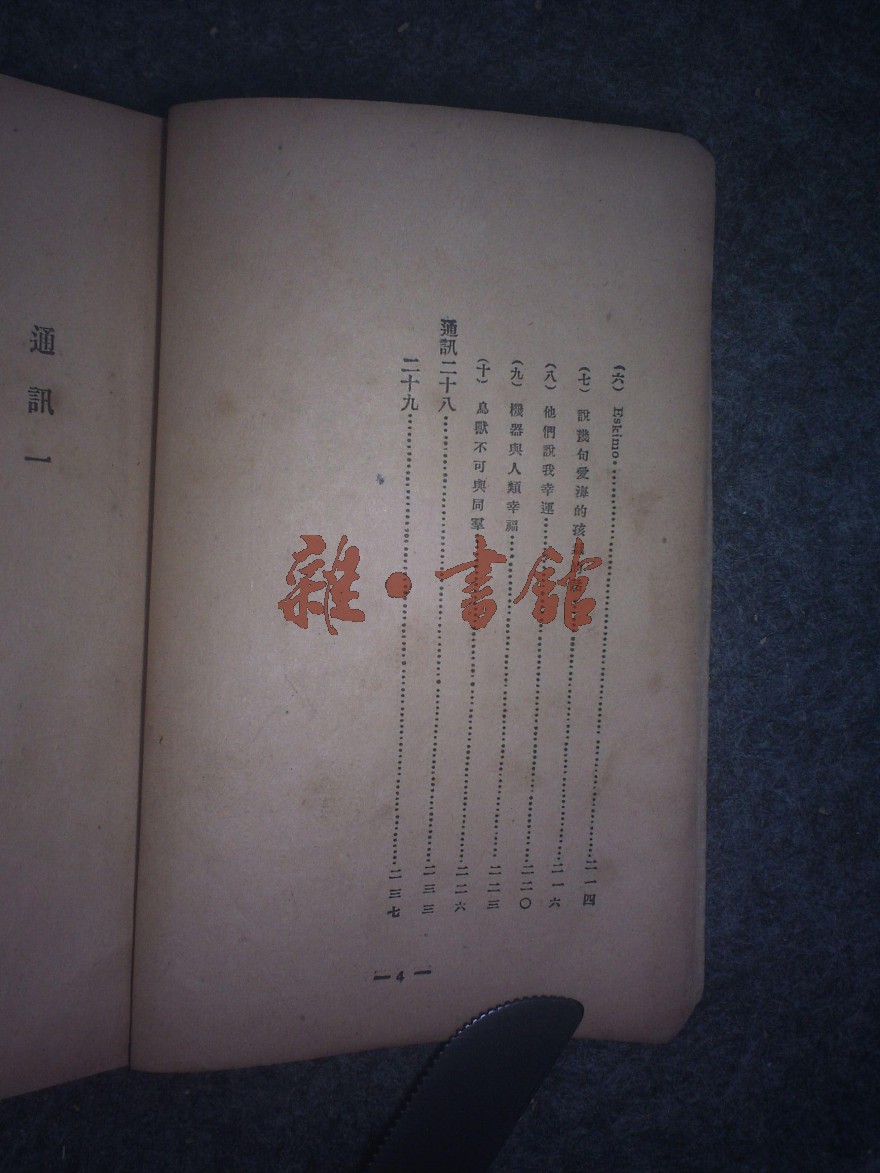 (六) Eskimo……二一四
(七) 說幾句愛海的孩氣的話……二一六
(八) 他們說我幸運……二二〇
(九) 機器與人類幸福……二二三
(十) 鳥獸不可與同羣……二二六
通訊二十八……二三三
二十九……二三七
— 4 —
通訊一
雜·書館